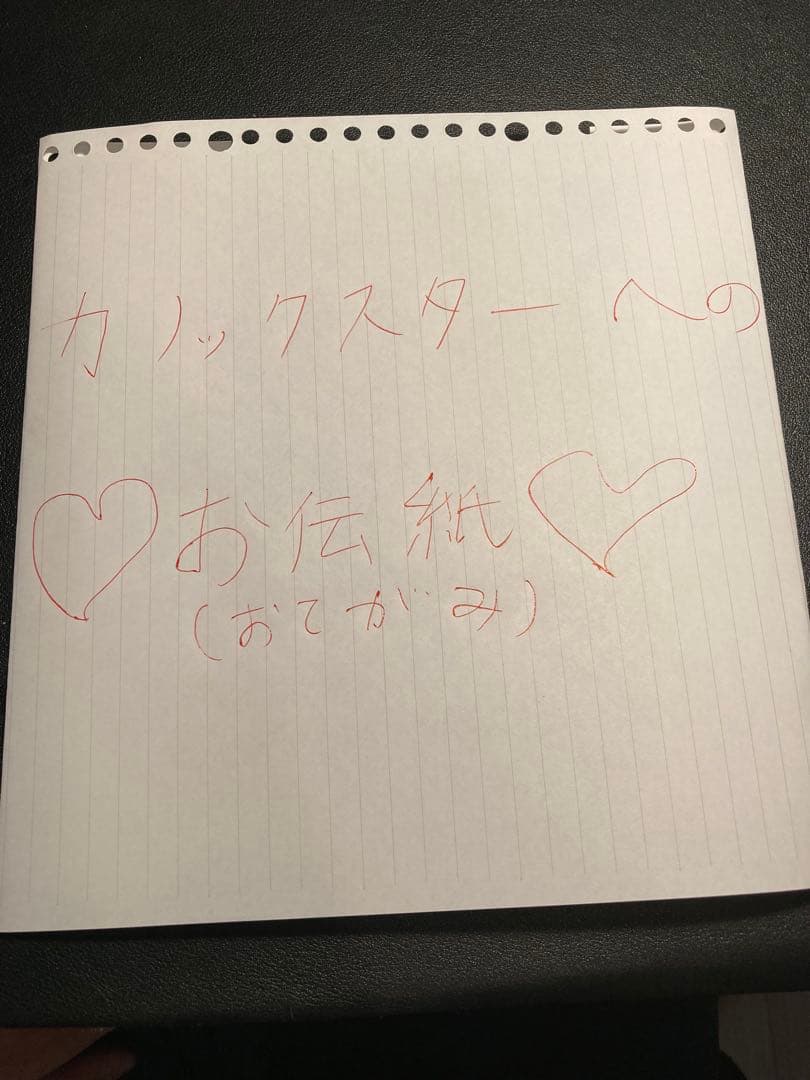 カノックスターへの
♡お伝紙♡
(おてがみ)